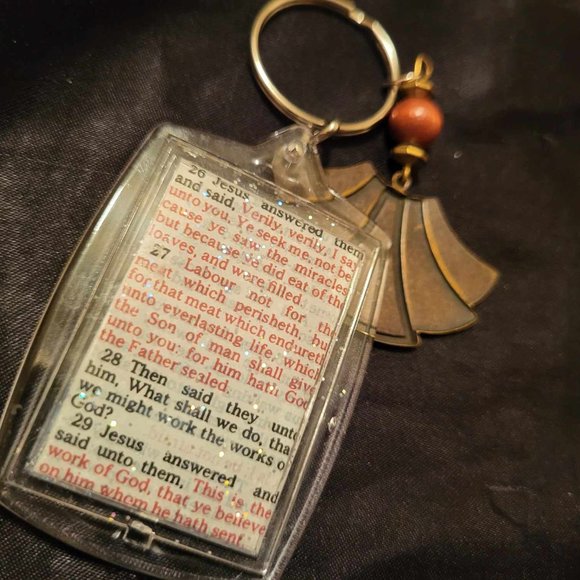 26 Jesus answered them
and said, Verily, verily, I say
unto you, Ye seek me, not be
cause ye saw the miracles
but because ye did eat of the
loaves, and were filled.
27 Labour not for the
meat which perisheth, bu
for that meat which endureth
unto everlasting life, which
the Son of man shall give
unto you: for him hath God
the Father sealed.
28 Then said they unto
him, What shall we do, tha
we might work the works o
God?
29 Jesus answered and
said unto them, This is the
work of God, that ye believe
on him whom he hath sent